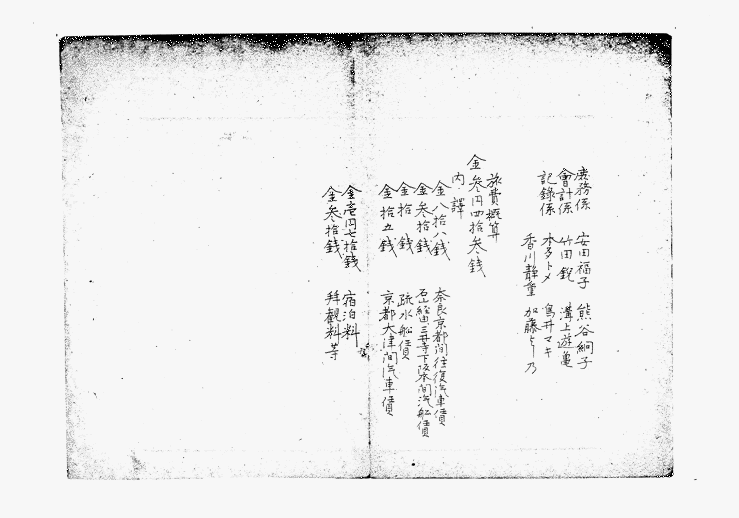 庶務係 安田福子 熊谷絅子
會計係 竹田鋭 溝上遊亀
記錄係 本多トメ 寫井マキ
香川静重 加藤とし乃
旅費概算
金参円四拾参錢
内譯
金八拾八錢 奈良京都間往復汽車價
金参拾錢 石山経由三井寺下阪本間汽船價
金拾錢 疏水船價
金拾五錢 京都大津間汽車價
金壱円七拾錢 宿泊料
金参拾錢 拜観料等